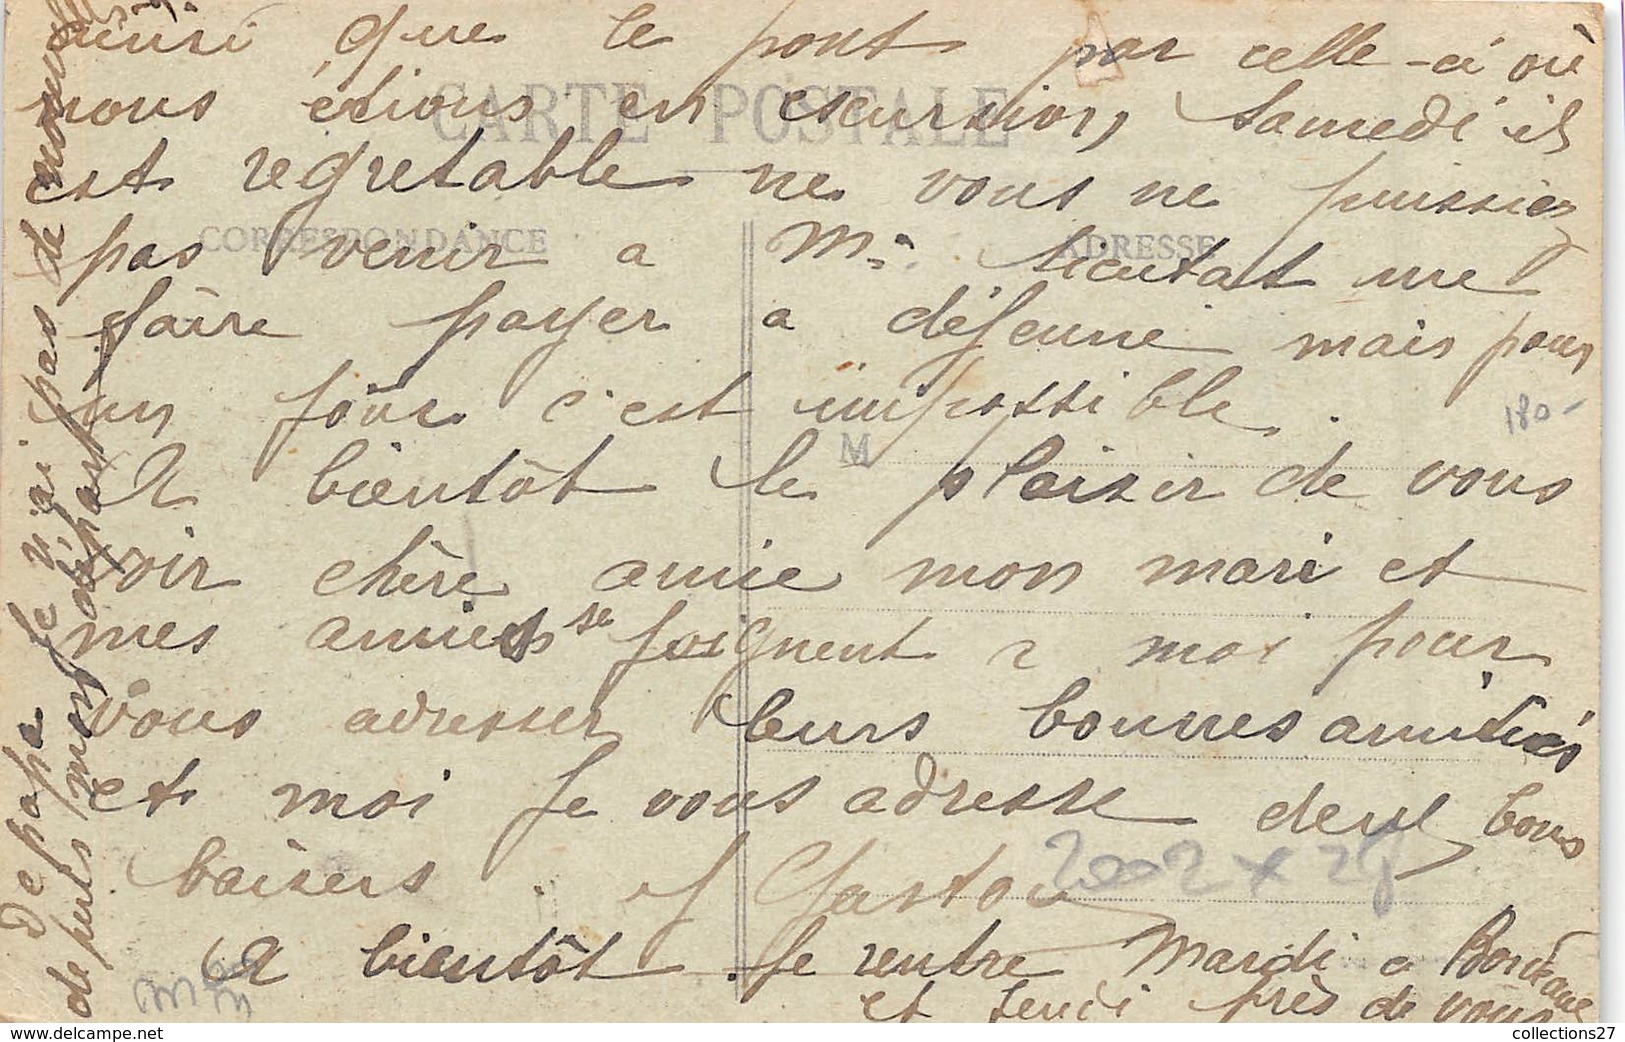 ainsi que le pont par celle-ci où
nous étions en escursion, Samedi il
est regretable ne vous ne puissiez
pas venir a Mr me
faire payer a déjeuné mais pour
un jour c'est impossible.
A bientôt le plaisir de vous
voir chère amie mon mari et
mes amies se joignent a moi pour
vous adresser leurs bonnes amitiés
et moi je vous adresse deux bons
baisers.
A bientôt. Je rentre Mardi a Bordeaux
et Jeudi près de vous
De papa je n'ai pas de nouvelles
depuis mon départ
CARTE POSTALE
CORRESPONDANCE
ADRESSE
M
180-
collections27